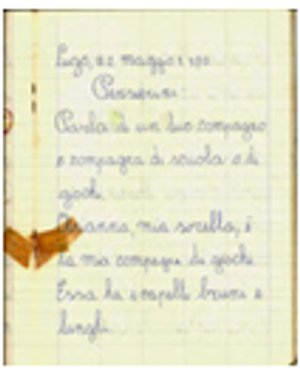 Lugo, 22 maggio 1
Pensierini:
Parla di un tuo compagno
o compagna di scuola o di
giochi.
Arianna, mia sorella, è
la mia compagna di giochi.
Essa ha i capelli bruni e
lunghi.